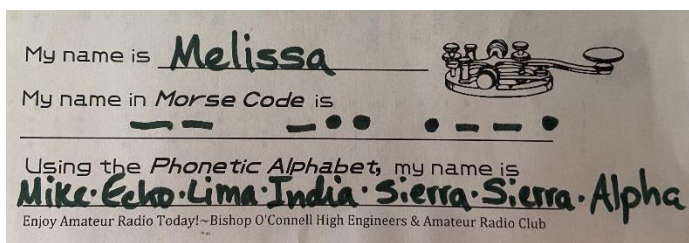 My name is Melissa
My name in Morse Code is
— — — • • • — — •
Using the Phonetic Alphabet, my name is
Mike · Ecko · Lima · India · Sierra · Sierra · Alpha
Enjoy Amateur Radio Today!~Bishop O'Connell High Engineers & Amateur Radio Club